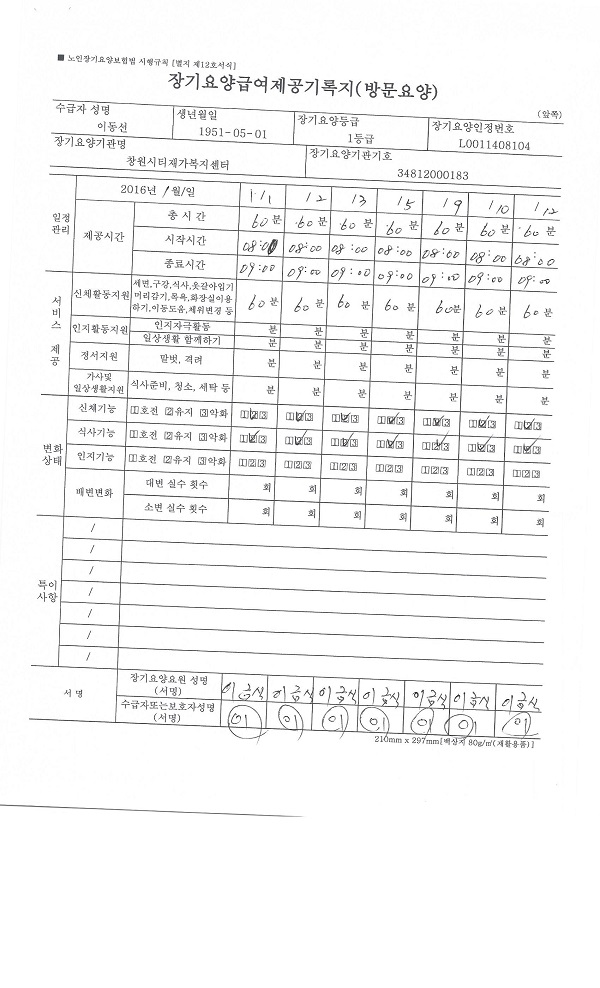 ■ 노인장기요양보험법 시행규칙 [별지 제12호서식]
장기요양급여제공기록지(방문요양)
(앞쪽)
수급자 성명 생년월일 장기요양등급 장기요양인정번호
이동선 1951-05-01 1등급 L0011408104
장기요양기관명 장기요양기관기호
창원시티재가복지센터 34812000183
일정관리 2016년 1월/일 1/1 1/2 1/3 1/5 1/9 1/10 1/12
제공시간 총 시간 60분 60분 60분 60분 60분 60분 60분
시작시간 08:00 08:00 08:00 08:00 08:00 08:00 08:00
종료시간 09:00 09:00 09:00 09:00 09:00 09:00 09:00
서비스 제공
신체활동지원 세면,구강,식사,옷갈아입기
머리감기,목욕,화장실이용
하기,이동도움,체위변경 등
60분 60분 60분 60분 60분 60분 60분
인지활동지원 인지자극활동 분 분 분 분 분 분 분
일상생활 함께하기 분 분 분 분 분 분 분
정서지원 말벗, 격려 분 분 분 분 분 분 분
가사및
일상생활지원 식사준비, 청소, 세탁 등 분 분 분 분 분 분 분
변화상태
신체기능 1호전 2유지 3악화 123 123 123 123 123 123 123
식사기능 1호전 2유지 3악화 123 123 123 123 123 123 123
인지기능 1호전 2유지 3악화 123 123 123 123 123 123 123
배변변화 대변 실수 횟수 회 회 회 회 회 회 회
소변 실수 횟수 회 회 회 회 회 회 회
특이사항
/
/
/
/
/
/
/
서 명
장기요양요원 성명
(서명)
이금식 이금식 이금식 이금식 이금식 이금식 이금식
수급자또는보호자성명
(서명)
이 이 이 이 이 이 이
210mm x 297mm[백상지 80g/㎡(재활용품)]